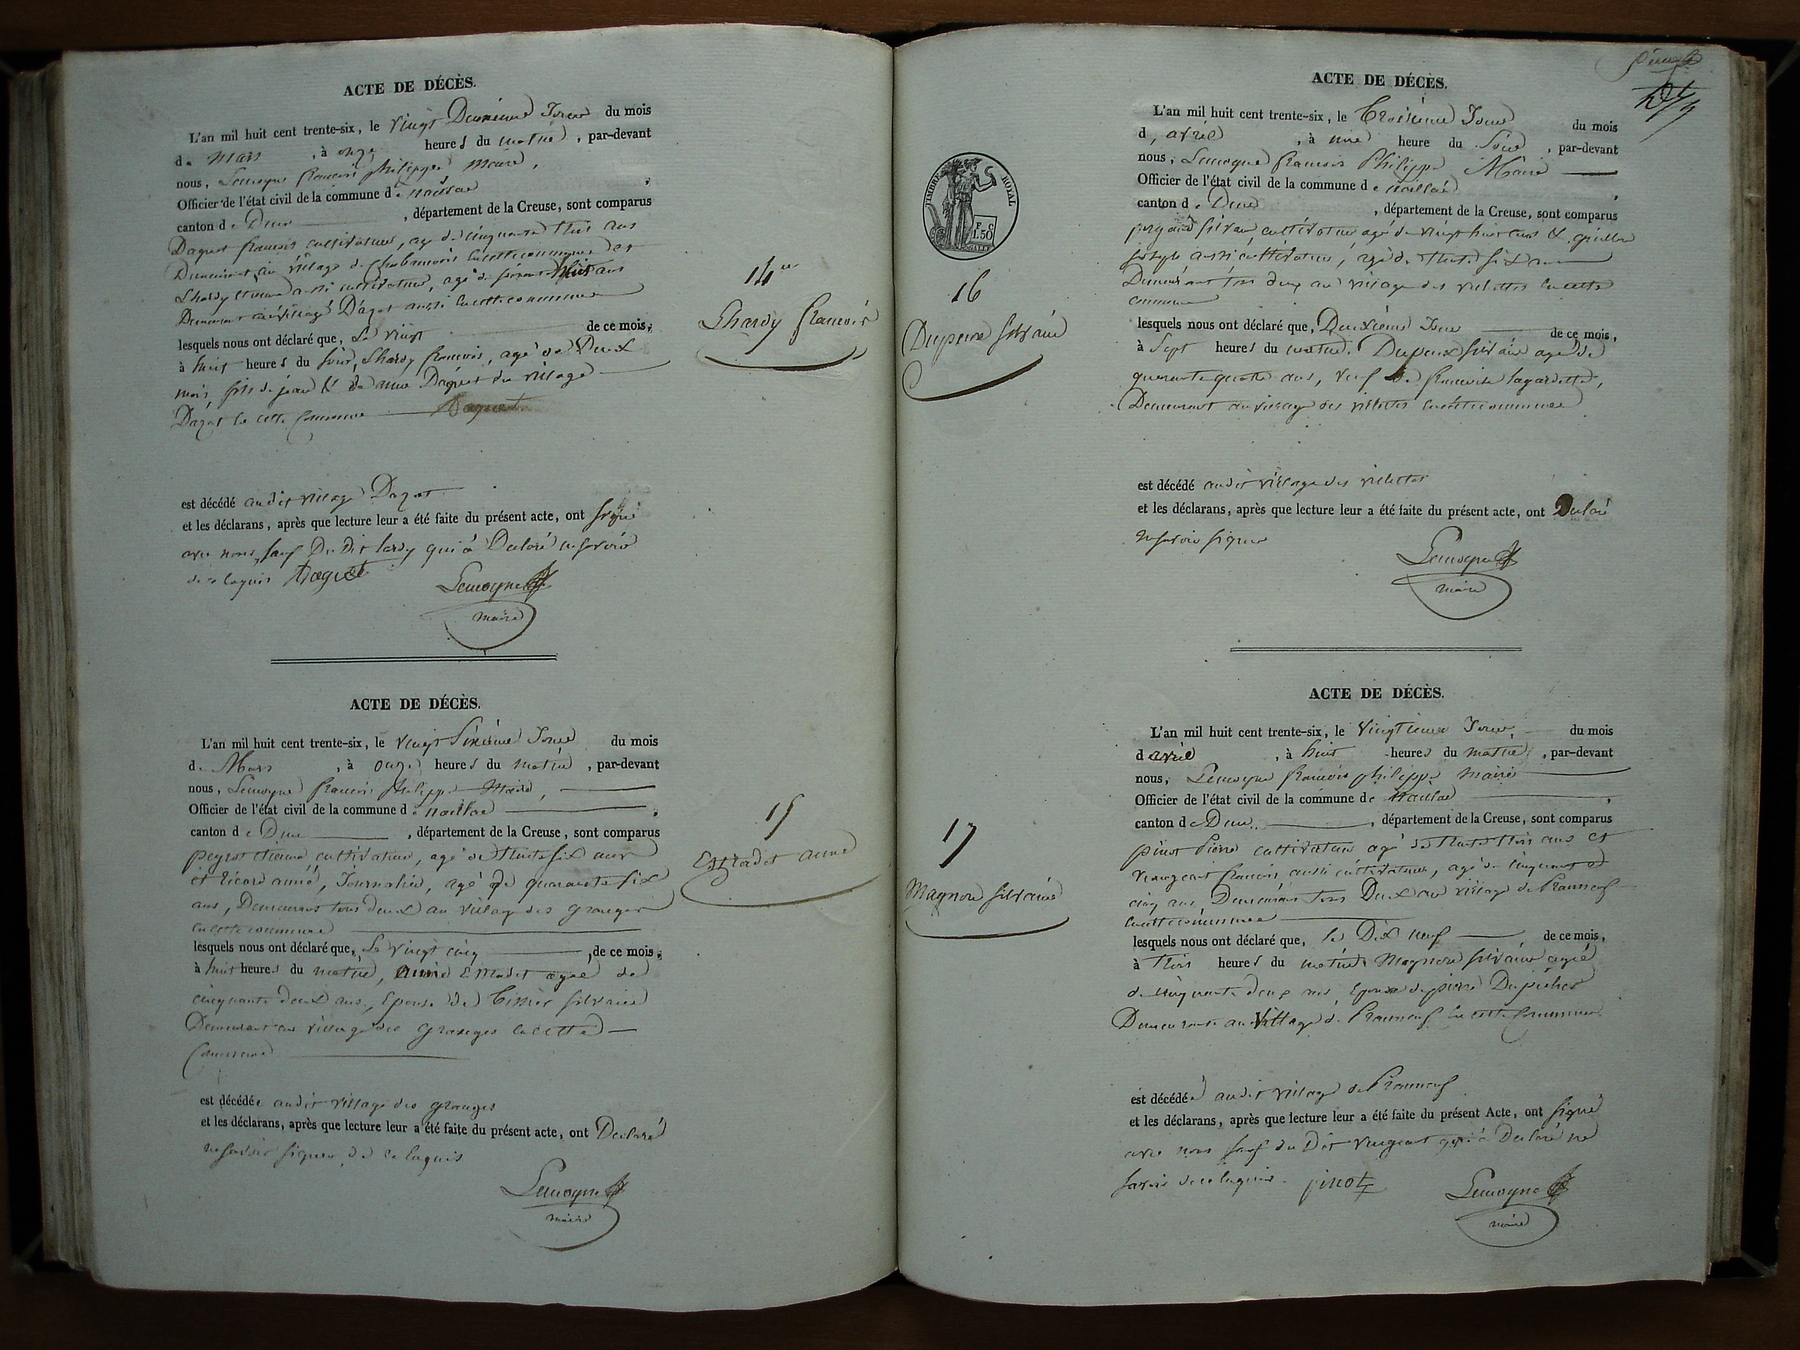 ACTE DE DÉCÈS.
L'an mil huit cent trente-six, le vingt Deuxième Jour du mois
de Mars, à onze heures du matin, par-devant
nous, Lemoyne françois philippe, Maire,
Officier de l'état civil de la commune de naillac,
canton de Dun, département de la Creuse, sont comparus
Daguet françois cultivateur, agé de cinquante trois ans
Demeurant au village de en cette commune, et
Lhardy etienne aussi cultivateur, agé de ans
Demeurant au village Dazat aussi en cette commune
lesquels nous ont déclaré que, Le vingt de ce mois,
à huit heures du soir, Lhardy françois, agé de Deux
mois, fils de jean et de anne Daguet du village
Dazat en cette commune
est décédé au dit village Dazat
et les déclarans, après que lecture leur a été faite du présent acte, ont signé
avec nous, sauf Du dit lardy qui à Declaré ne savoir
de ce enquis Daguet Lemoyne
maire
14
Lhardy françois
ACTE DE DÉCÈS.
L'an mil huit cent trente-six, le vingt Sixième Jour du mois
de Mars, à onze heures du matin, par-devant
nous, Lemoyne françois philippe Maire,
Officier de l'état civil de la commune de naillac,
canton de Dun, département de la Creuse, sont comparus
peyrot etienne cultivateur, agé de trente six ans
et Ricard anné, Journalier, agé de quarante six
ans, Demeurans tous deux au village des granges
en cette commune
lesquels nous ont déclaré que, Le vingt cinq de ce mois,
à huit heures du matin, anne Estradet agée de
cinquante deux ans, Epouse de Tixier silvain
Demeurant au village des granges en cette
Commune
est décédée au dit village des granges
et les déclarans, après que lecture leur a été faite du présent acte, ont Declaré
ne savoir signer de ce enquis
Lemoyne
maire
15
Estradet anne
TIMBRE ROYAL
F. C.
1.50
ACTE DE DÉCÈS.
L'an mil huit cent trente-six, le Troisième Jour du mois
d, avril, à une heure du Soir, par-devant
nous, Lemoyne françois Philippe Maire
Officier de l'état civil de la commune de naillac,
canton de Dun, département de la Creuse, sont comparus
silvain, cultivateur agé de vingt huit ans &
joseph aussi cultivateur, agé de trente six ans
Demeurant tous deux au village des villettes en cette
commune
lesquels nous ont déclaré que, Deuxième Jour de ce mois,
à Sept heures du matin, Dupeux silvain agé de
quarante quatre ans, veuf de françoise lagardette,
Demeurant au village des villettes en cette commune
est décédé au dit village des villettes
et les déclarans, après que lecture leur a été faite du présent acte, ont Declaré
ne savoir signer
Lemoyne
maire
16
Dupeux silvain
ACTE DE DÉCÈS.
L'an mil huit cent trente-six, le vingtieme Jour du mois
d avril, à huit heures du matin, par-devant
nous, Lemoyne françois philippe maire
Officier de l'état civil de la commune de naillac,
canton de Dun, département de la Creuse, sont comparus
pinot Pierre cultivateur agé de trente trois ans et
françois aussi cultivateur, agé de cinquante
cinq ans Demeurans tous Deux au village de
en cette commune
lesquels nous ont déclaré que, le Dix neuf de ce mois,
à trois heures du matin Magnon silvaine agée
de cinquante deux ans, Epouse de pierre
Demeurante au village de en cette Commune
est décédée au dit village de
et les déclarans, après que lecture leur a été faite du présent Acte, ont signé
avec nous sauf du Dit qui à Declaré ne
savoir de ce enquis. pinot Lemoyne
maire
17
Magnon silvaine